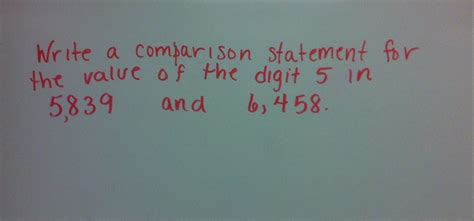 Write a comparison statement for
the value of the digit 5 in
5,839 and 6,458.